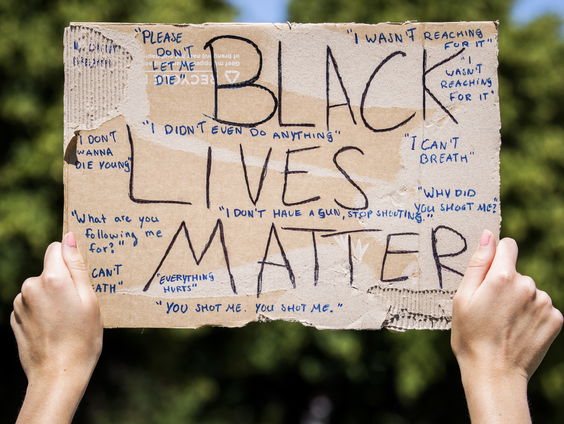 "PLEASE
DON'T
LET ME
DIE"
BLACK
"I WASN'T REACHING
FOR IT"
"I
WASN'T
REACHING
FOR IT"
"I DIDN'T EVEN DO ANYTHING"
"I DON'T
WANNA
DIE YOUNG"
LIVES
"I CAN'T
BREATH"
"WHY DID
YOU SHOOT ME?"
"What are you
following me
for?"
"I DON'T HAVE A GUN, STOP SHOOTING."
MATTER
CAN'T
EATH"
"EVERYTHING
HURTS"
"YOU SHOT ME. YOU SHOT ME."